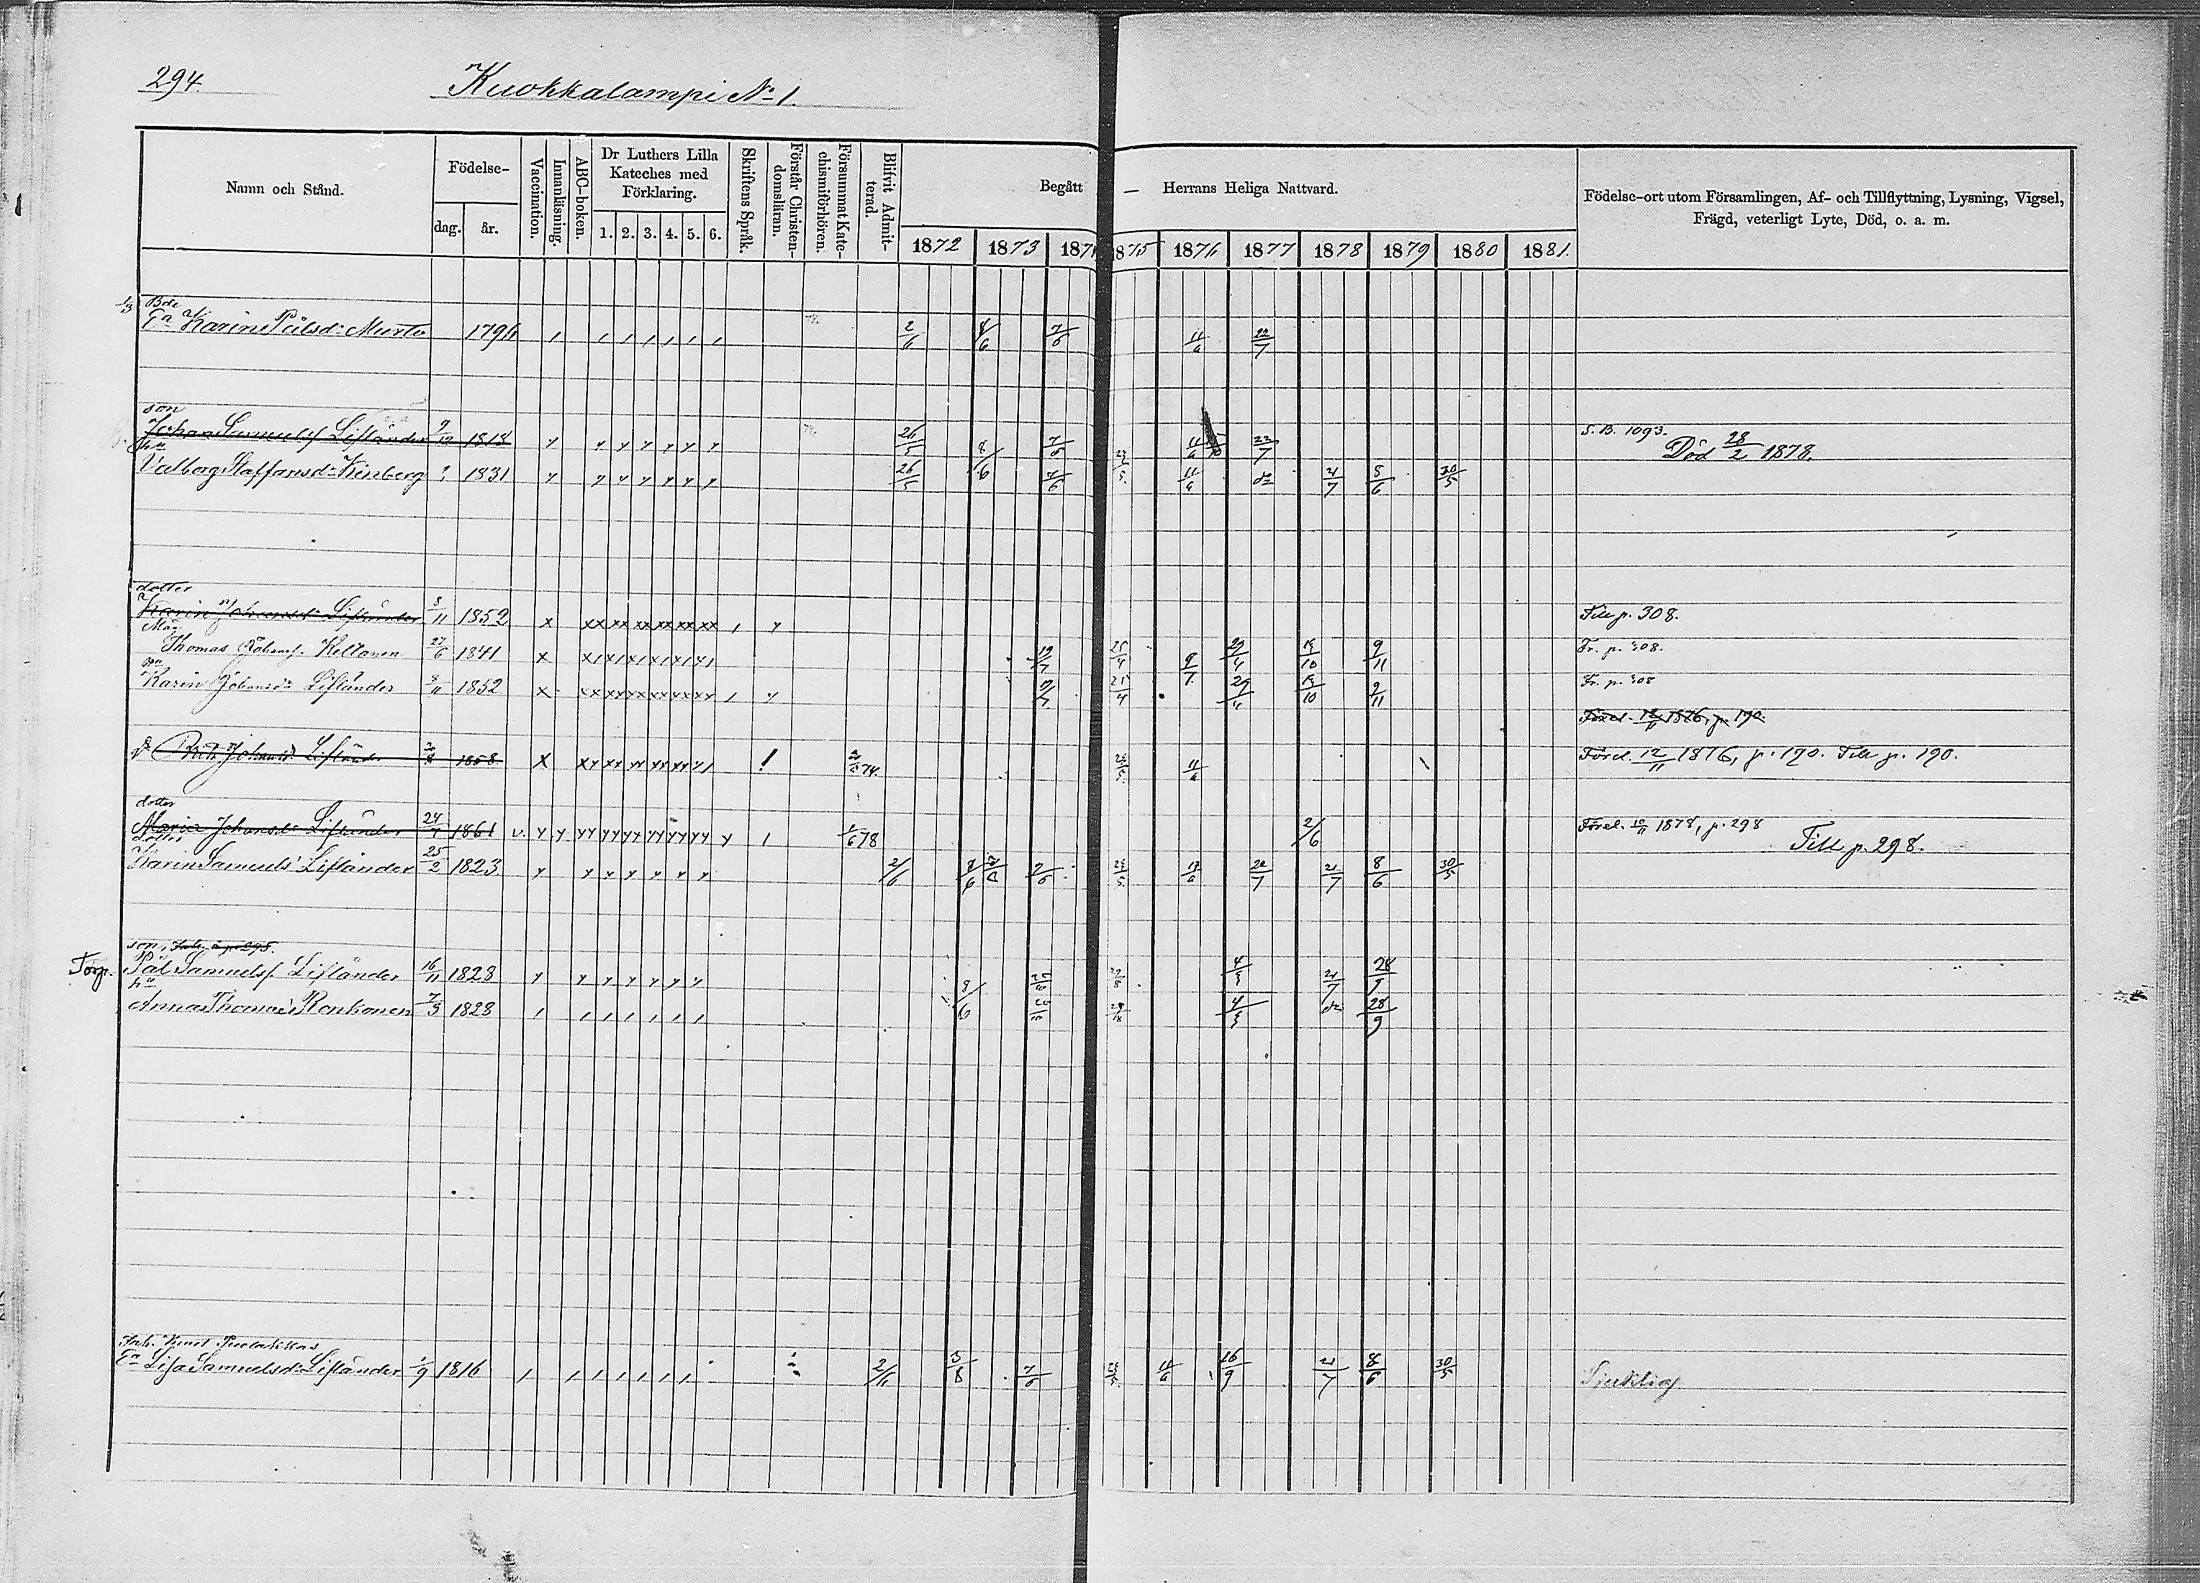 294.
Kuokkalampi No 1.
Namn och Stånd.
Födelse-
dag.
år.
Vaccination.
Innanläsning.
ABC-boken.
Dr Luthers Lilla Kateches med Förklaring.
1. 2. 3. 4. 5. 6.
Skriftens Språk.
Förstår Christendomsläran.
Försummat Katechismiförhören.
Blifvit Admitterad.
Begått — Herrans Heliga Nattvard.
1872 1873 1874 1875 1876 1877 1878 1879 1880 1881.
Födelse-ort utom Församlingen, Af- och Tillflyttning, Lysning, Vigsel,
Frägd, veterligt Lyte, Död, o. a. m.
Bde
Ea Karin Pålsd: Murto 1796 2/6 8/6 7/6 11/6 22/7
son
Johan Samuelsf Lifländer 9/12 1818 26/5 8/6 7/6 11/6 22/7 S. B. 1093. Död 28/2 1878.
hu
Valborg Staffansd: Kinberg ? 1831 26/5 7/6 11/6 do 21/7 8/6 30/5
dotter
Karin Johansd: Lifländer 8/11 1852 Till p. 308.
Måg
Thomas Johansf. Keltanen 27/6 1841 19/7 25/4 8/7 29/4 19/10 9/11 Fr. p. 308.
hu
Karin Johansd: Lifländer 8/11 1852 25/4 29/4 19/10 9/11 Fr. p. 308
Förel. 12/11 1876, p. 190.
dr Johansd: Lifländer 1858 74. 11/6 Förel. 12/11 1876, p. 190. Till p. 190.
dotter
Maria Johansd: Lifländer 24/4 1861 v. 1/6 78 2/6 Förel. 10/11 1878, p. 298 Till p. 298.
dotter
Karin Samuelsd: Lifländer 25/2 1823 2/6 8/6 7/6 22/7 21/7 8/6 30/5
son, Inh. å p. 298.
Torp. Pål Samuelsf Lifländer 16/11 1828 4/3 21/7 28/9
hu
Anna Thomasd: Ronkonen 7/3 1828 8/6 4/3 do 28/9
Inh.
Ea Lisa Samuelsd: Lifländer 1/9 1816 2/6 7/6 11/6 16/9 21/7 8/6 30/5 Sjuklig